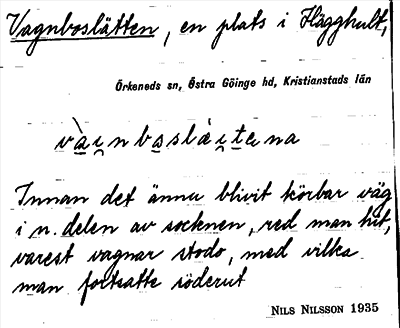 Vagnboslätten, en plats i Hägghult,
Örkeneds sn, Östra Göinge hd, Kristianstads län
và̠i̯nba̠slǽi̯te̠na
Innan det ännu blivit körbar väg
i n. delen av socknen, red man hit,
varest vagnar stodo, med vilka
man fortsatte söderut
NILS NILSSON 1935